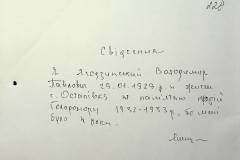 228
Свідчення
Я Ягодзинський Володимир
Павлович 25.01.1927 р. н. житель
с. Остапівка не пам'ятаю подій
Голодомору 1932-1933 р, бо мені
було 4 роки.